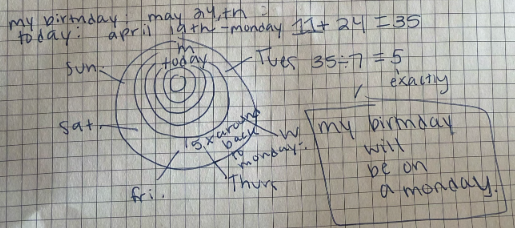 my birthday: may 24th
today: april 19th - monday 11 + 24 = 35
m
today
Tues 35 ÷ 7 = 5
exactly
Sun.
Sat.
5x around
back
to
monday.
W
Thurs
fri.
my birthday
will
be on
a monday.